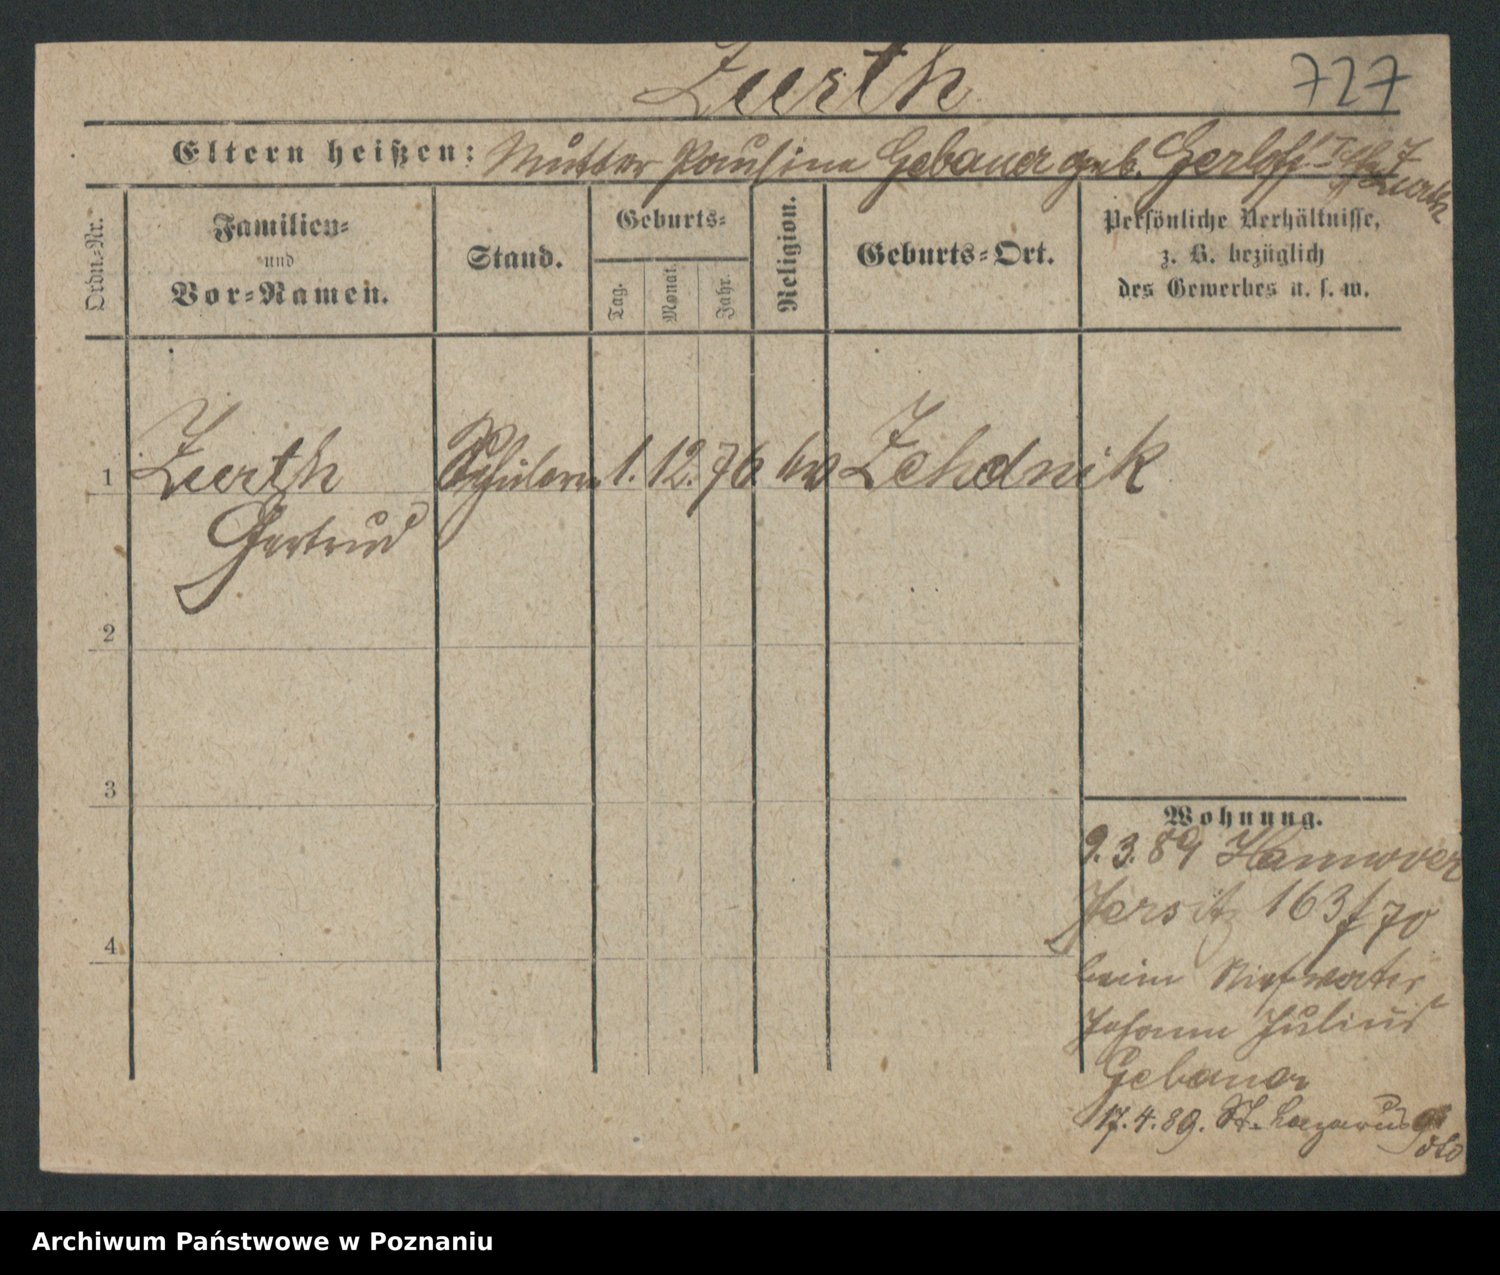 Zurth
727
Eltern heißen: Mutter Pauline Gebauer geb. Gerloff I Ehe
Zurth
Ordn.-Nr.
Familien-
und
Vor-Namen.
Stand.
Geburts-
Tag.
Monat.
Jahr.
Religion.
Geburts-Ort.
Persönliche Verhältnisse,
z. B. bezüglich
des Gewerbes u. s. w.
1 Zurth Schülerin 1. 12. 76 ev Zehdnik
Gertrud
2
3
4
Wohnung.
9. 3. 89 Hannover
Jersitz 163f 70
beim Stiefvater
Johann Julius
Gebauer
17. 4. 89. St. Lazarus
Archiwum Państwowe w Poznaniu